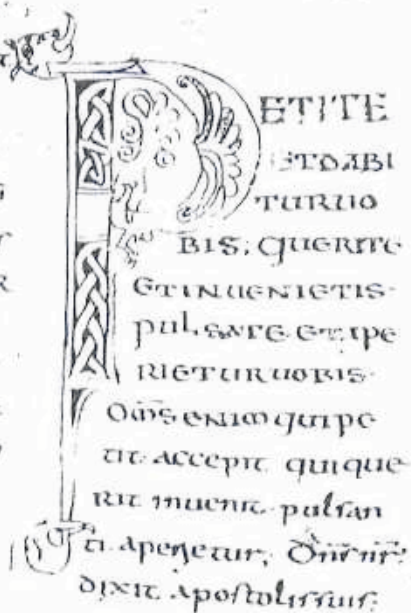 PETITE
ETDABI
TURUO
BIS; QUERITE
ETINUENIETIS·
pulsate·et ape
RIETURUOBIS·
Om̄s enim qui pe
tit· accepit qui que
rit inuenit· pulsan
ti aperietur; Dn̄s nr̄
dixit apostolis suis·